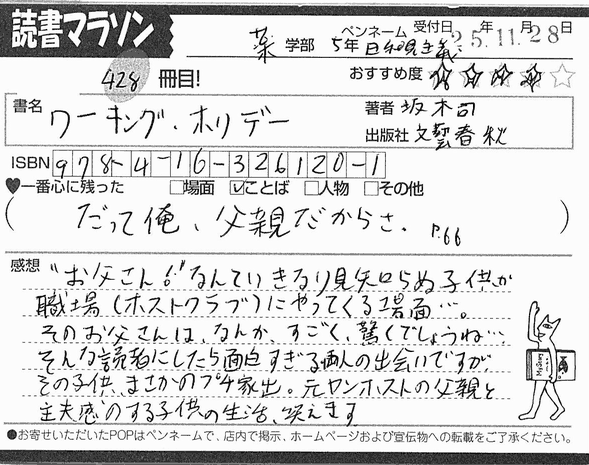 読書マラソン
薬 学部 5年 ペンネーム 日和見主義 受付日 25年11月28日
428 冊目!
おすすめ度 ★★★★☆
書名 ワーキング・ホリデー
著者 坂木司
出版社 文藝春秋
ISBN 978-4-16-326120-1
♥一番心に残った □場面 ☑ことば □人物 □その他
(だって俺、父親だからさ。 P.66)
感想 "お父さん!"なんていきなり見知らぬ子供が
職場(ホストクラブ)にやってくる場面…。
そのお父さんは、なんか、すごく、驚くでしょうね…
そんな読者にしたら面白すぎる両人の出会いですが、
その子供、まさかのプチ家出。元ヤンホストの父親と
主夫感のする子供の生活、笑えます
●お寄せいただいたPOPはペンネームで、店内で掲示、ホームページおよび宣伝物への転載をご了承ください。